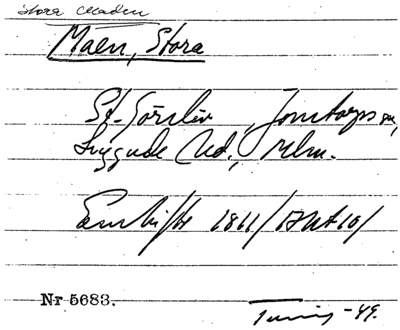 Stora Maden
Maen, Stora
St. Görslöv, Jonstorps sn,
Luggude hd., Mlm.
Enskifte 1811/Akt 10/
Nr 5683.
-49.